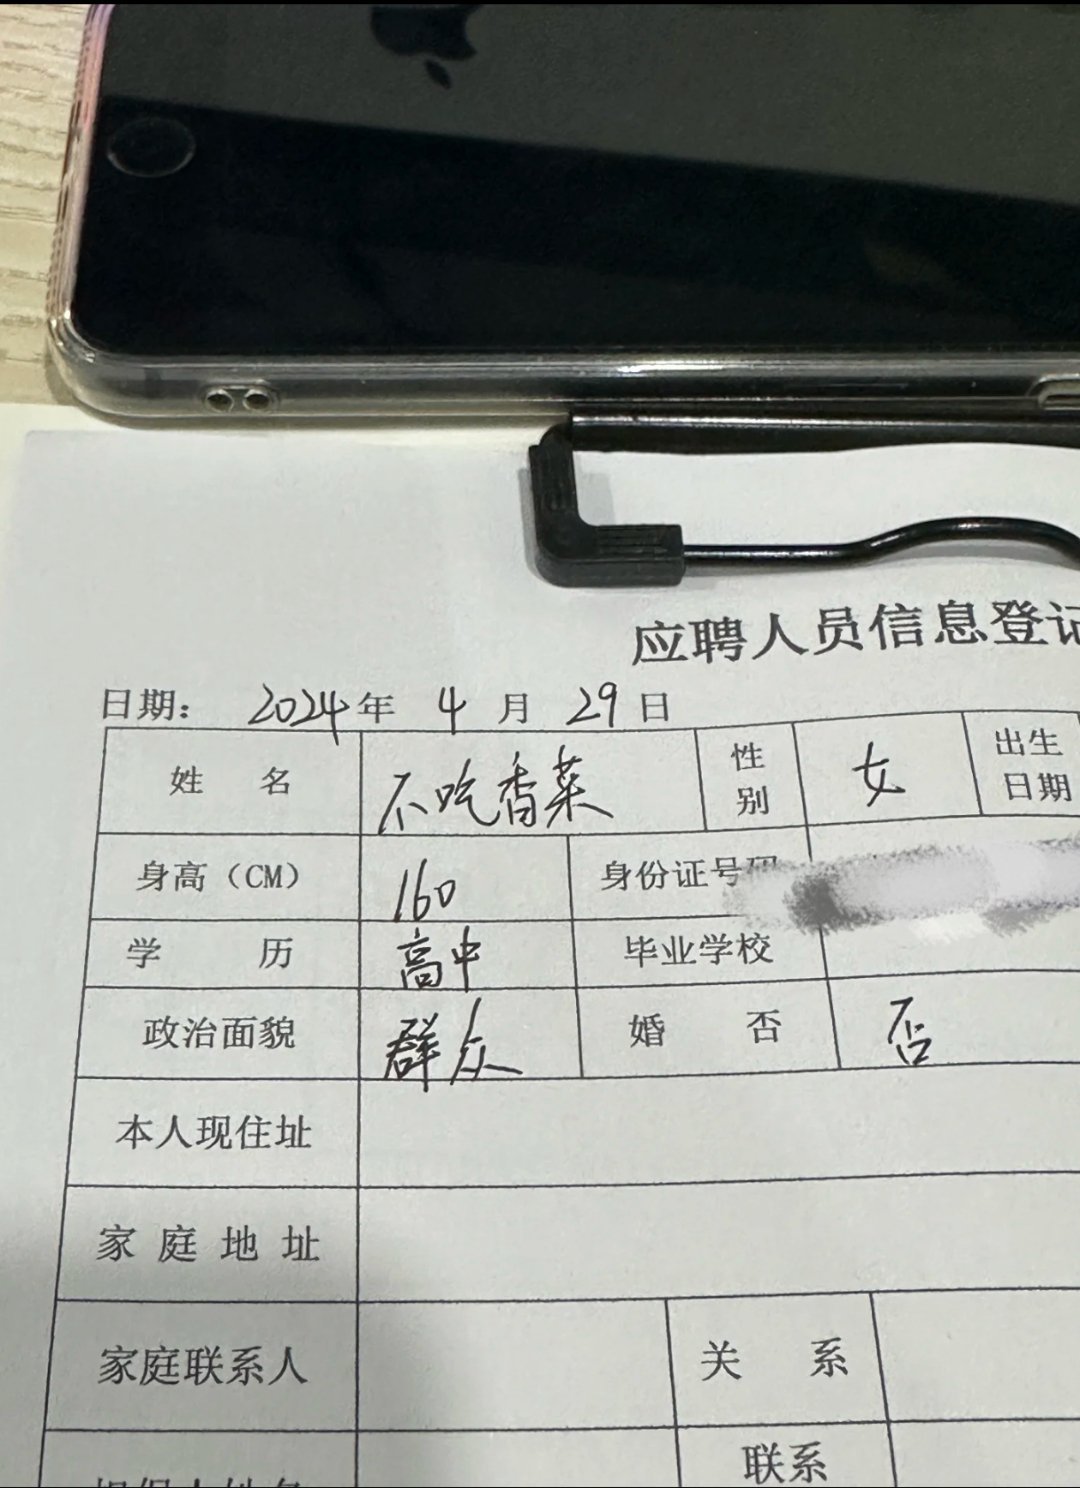 应聘人员信息登记
日期： 2024年 4 月 29日
姓 名 不吃香菜 性别 女 出生日期
身高（CM） 160 身份证号码
学 历 高中 毕业学校
政治面貌 群众 婚 否 否
本人现住址
家庭地址
家庭联系人 关 系
联系